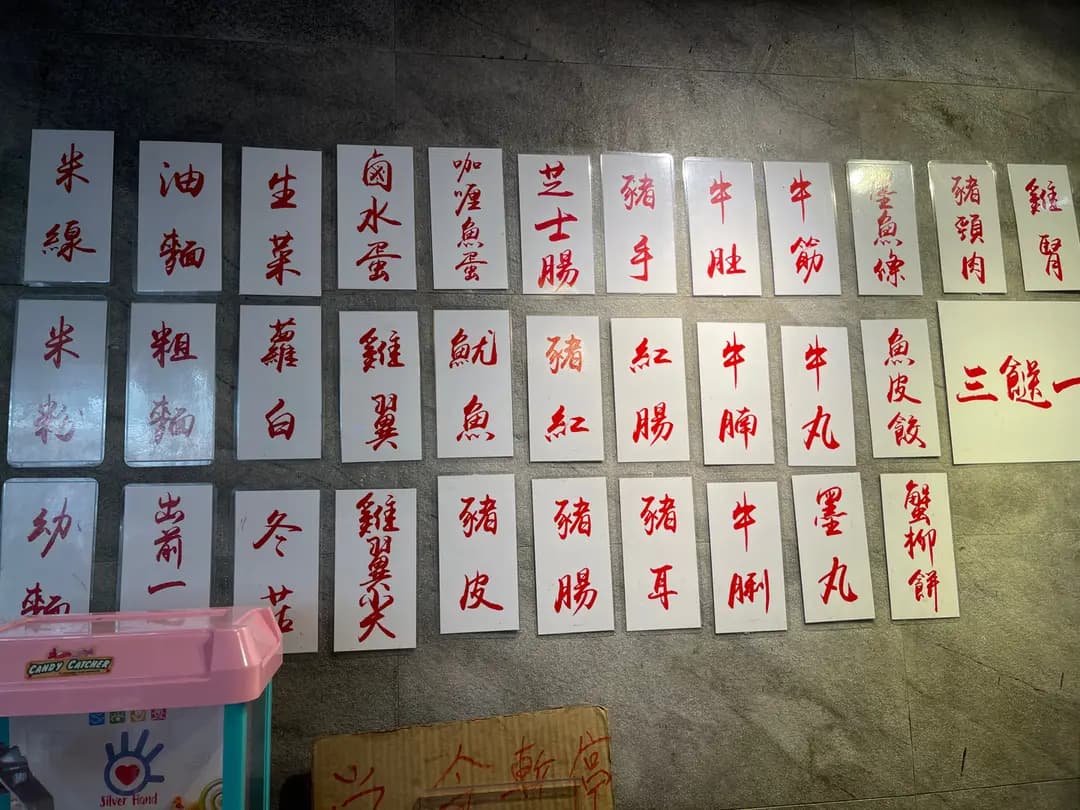 米線
油麵
生菜
鹵水蛋
咖喱魚蛋
芝士腸
豬手
牛肚
牛筋
墨魚條
豬頸肉
雞腎
米粉
粗麵
蘿白
雞翼
魷魚
豬紅
紅腸
牛腩
牛丸
魚皮餃
三餸一
幼麵
出前一
冬菇
雞翼尖
豬皮
豬腸
豬耳
牛脷
墨丸
蟹柳餅
CANDY CATCHER
Silver Hand
今暫